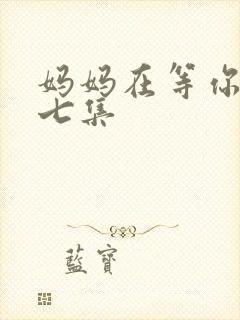 妈妈在等你
七集
藍寶